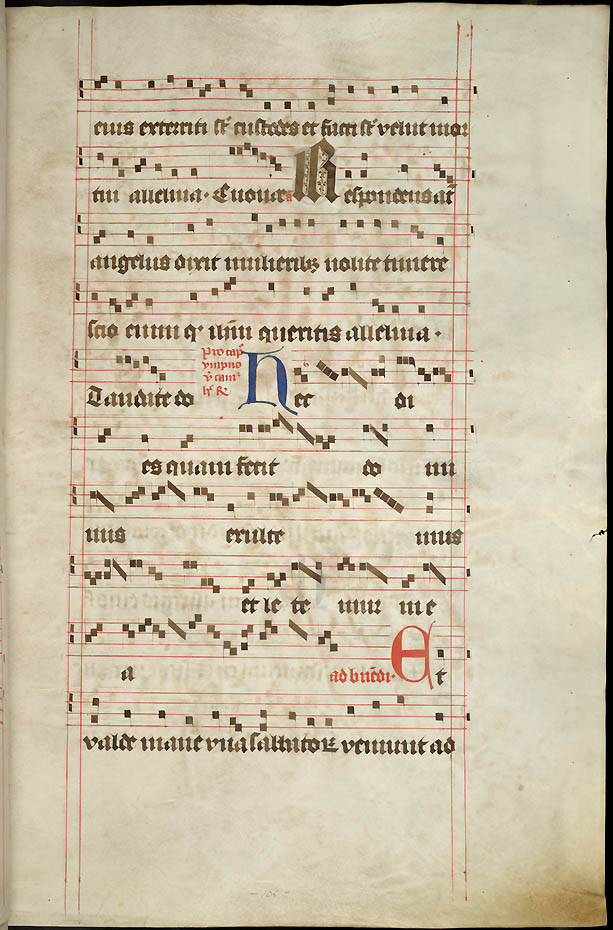 eius exterriti st̄ custodes et facti st̄ velut mor
tui alleluia · Euouae Respondens aūt
angelus dixit mulieribꝫ nolite timere
scio enim qꝛ iħm queritis alleluia ·
Pro cap̄
ympno
Laudate do Hec di
es quam fecit do mi
nus exulte mus
et le te mur in e
a ad bn̄di · Et
valde mane vna sabbatoꝝ veniunt ad